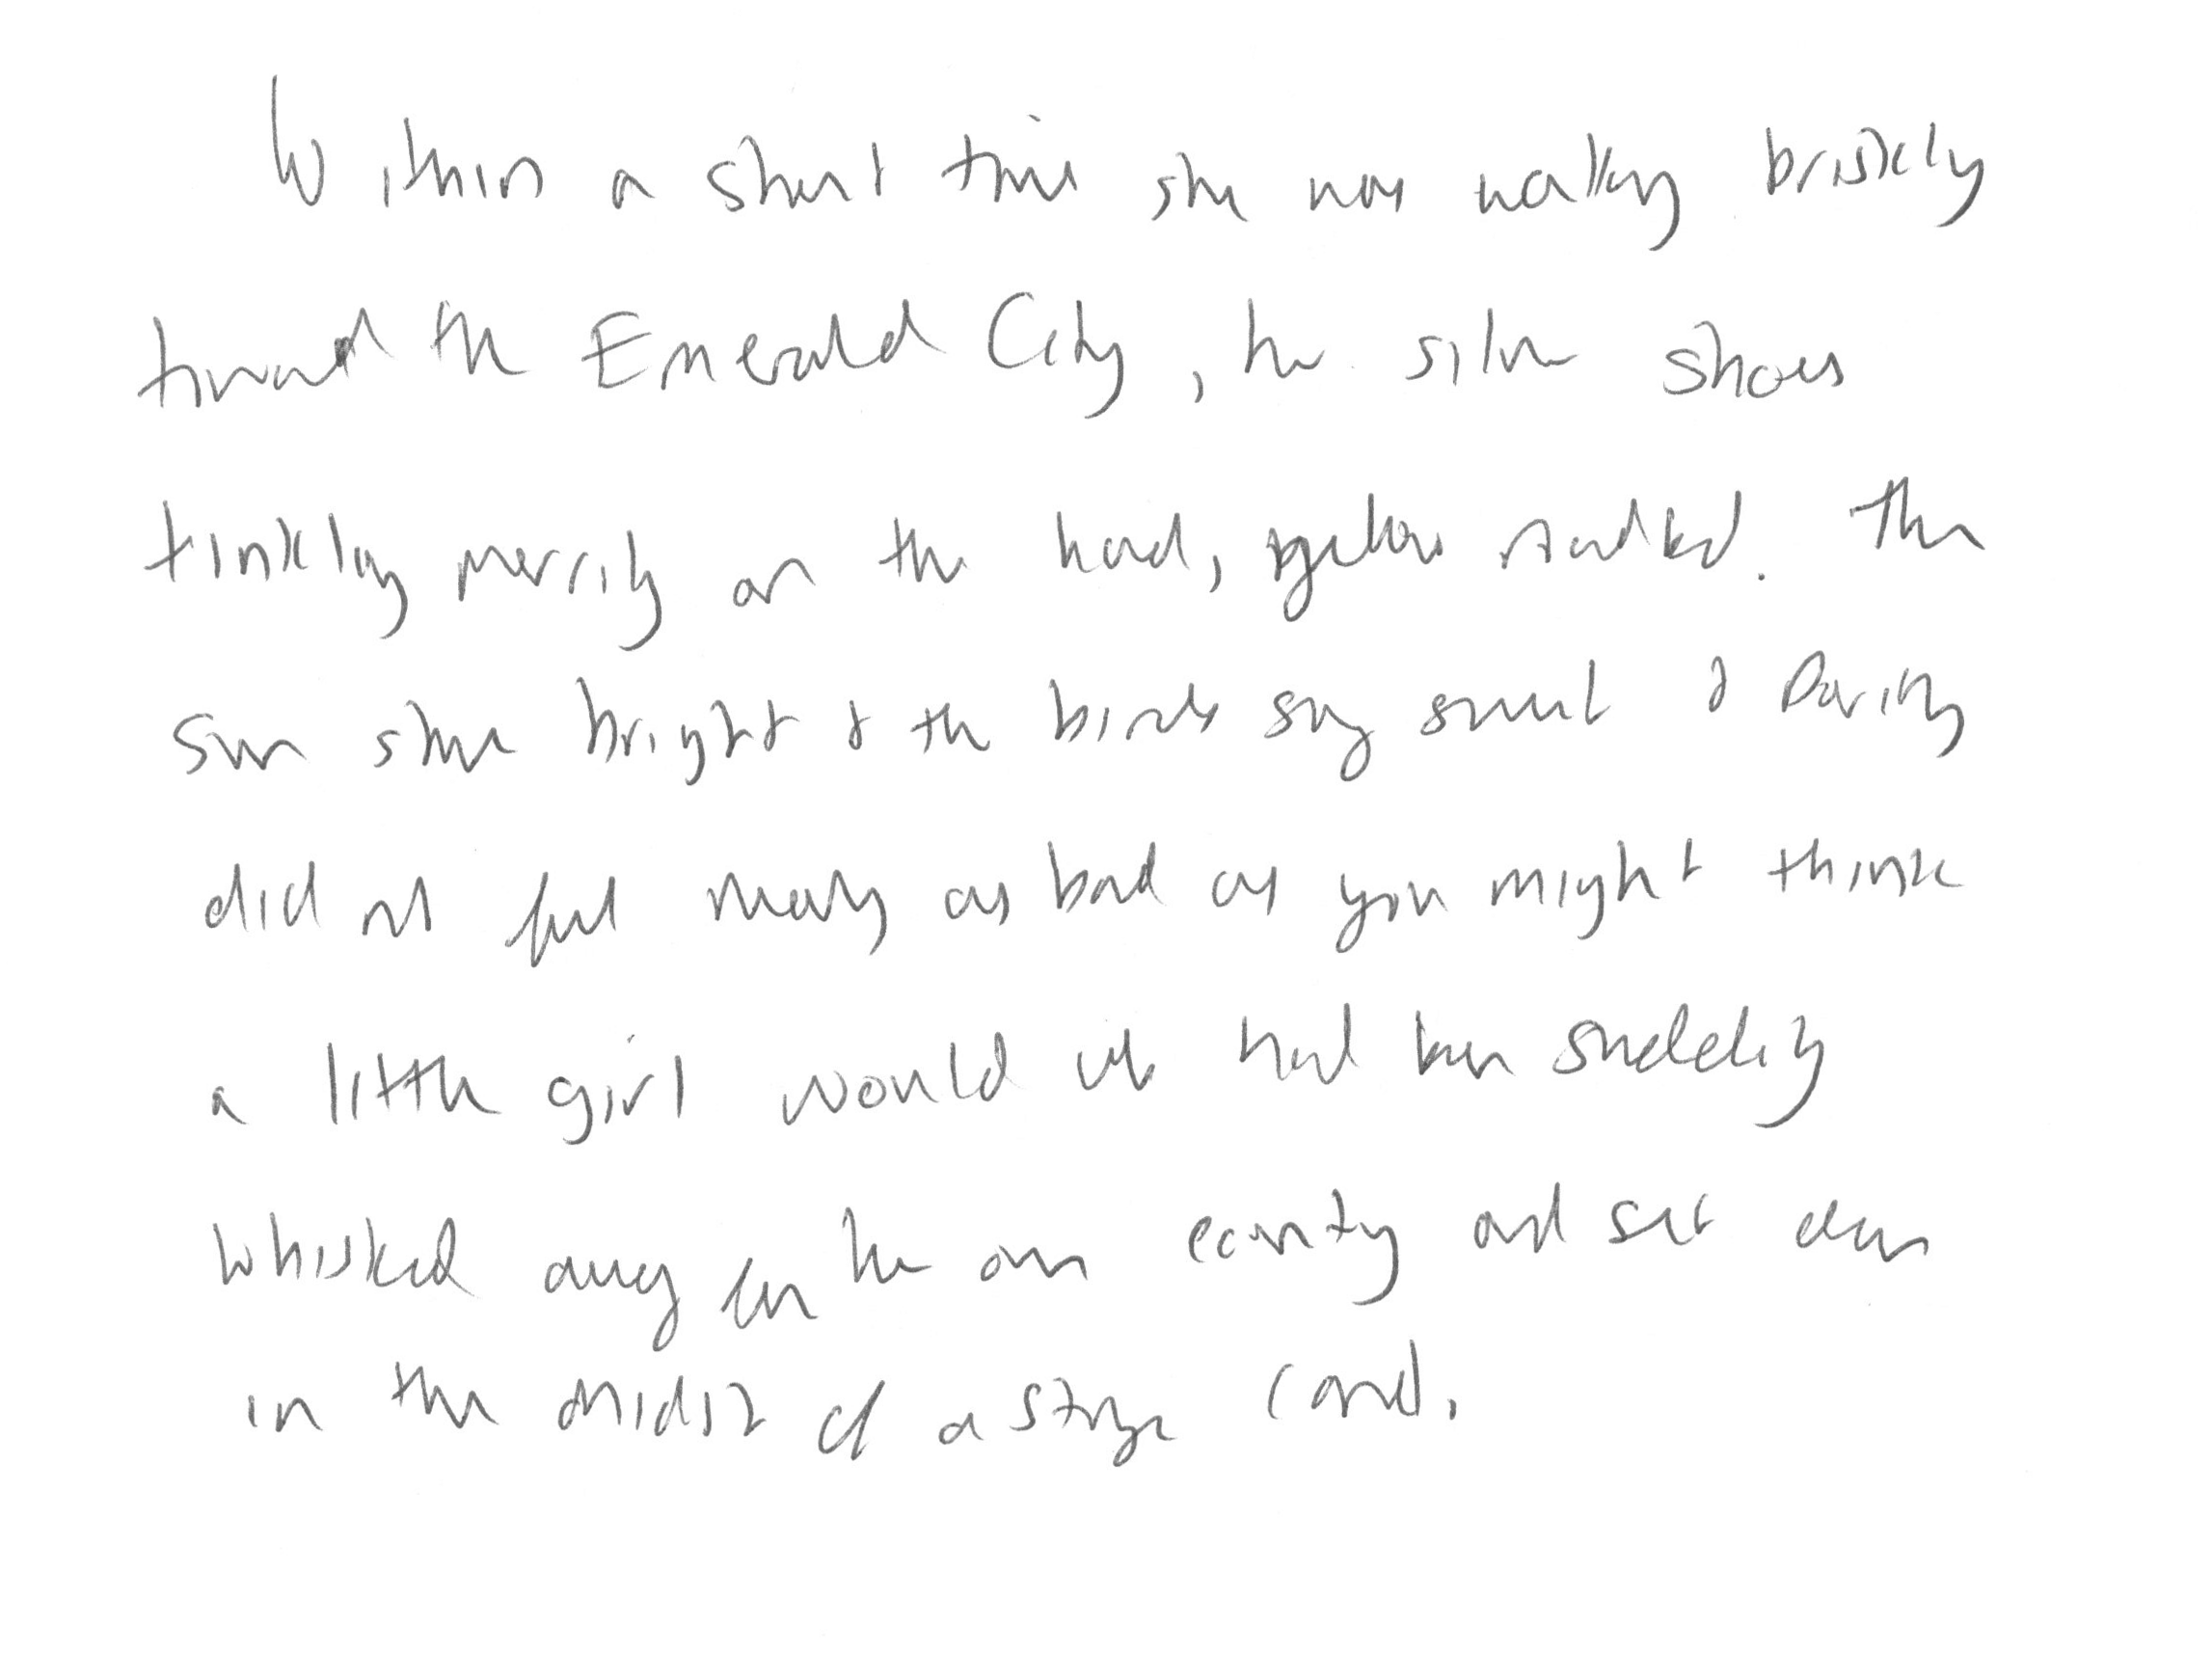 Within a short time she was walking briskly
toward the Emerald City, her silver shoes
tinkling merrily on the hard, yellow roadbed. The
sun shone bright & the birds sang sweet & Dorothy
did not feel nearly as bad as you might think
a little girl would who had been suddenly
whisked away from her own country and set down
in the midst of a strange land.